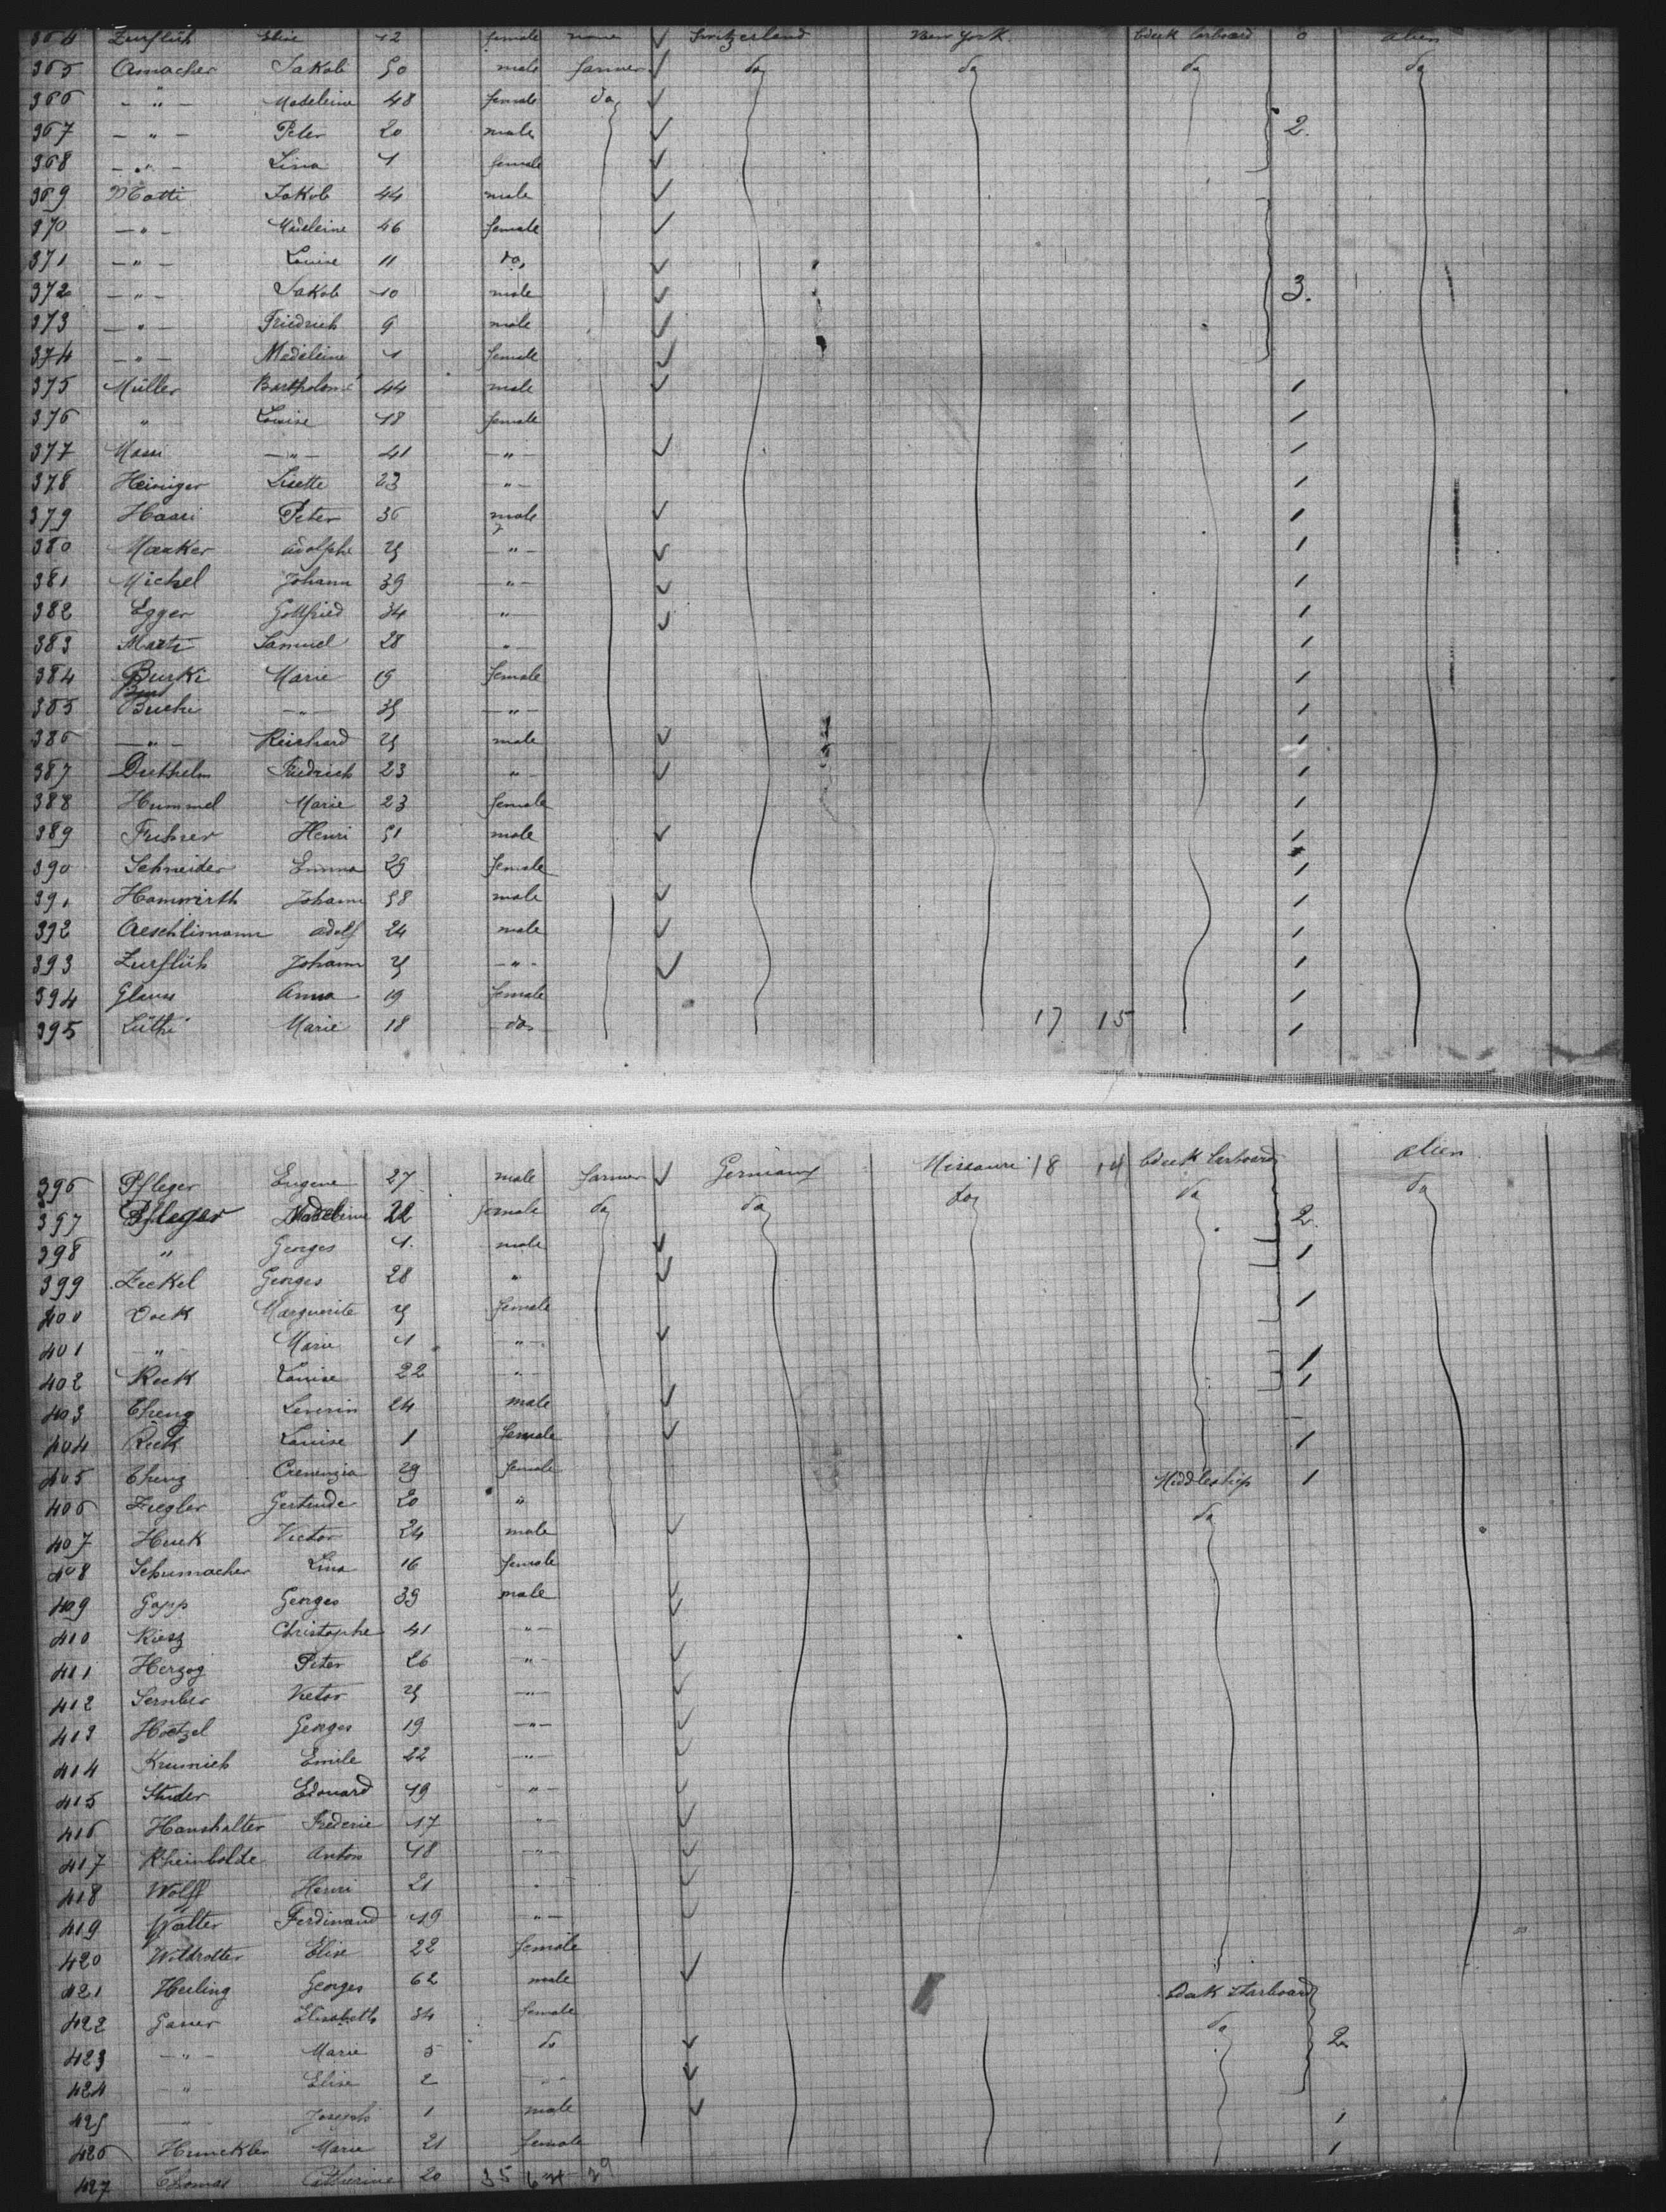 364 Zurflüh Elise 12 female none ✓ Switzerland New York bdeck larboard 0 alien
365 Amacher Jakob 50 male farmer ✓ do do do do
366 - " - Madeleine 48 female do ✓
367 - " - Peter 20 male ✓ 2.
368 - " - Lina 1 female ✓
369 Matti Jakob 44 male ✓
370 - " - Madeleine 46 female ✓
371 - " - Louise 11 do ✓
372 - " - Jakob 10 male ✓ 3.
373 - " - Friedrich 9 male ✓
374 - " - Madeleine 1 female ✓
375 Müller Bartholomé 44 male ✓ 1
376 " Louise 18 female 1
377 - " - 41 - " - ✓ 1
378 Heiniger Lisette 23 - " - 1
379 Haari Peter 36 male ✓ 1
380 Maaker Adolphe 25 - " - ✓ 1
381 Michel Johann 39 - " - ✓ 1
382 Egger Gottfried 34 - " - ✓ 1
383 Marti Samuel 28 - " - 1
384 Burki Marie 19 female 1
385 - " - 35 - " - 1
386 - " - Reichard 25 male ✓ 1
387 Diethelm Friedrich 23 " - ✓ 1
388 Hummel Marie 23 female 1
389 Fuhrer Henri 51 male ✓ 1
390 Schneider Emma 29 female 1
391 Hamwirth Johann 58 male ✓ 1
392 Aeschlimann Adolf 24 male ✓ 1
393 Zurflüh Johann 25 - " - ✓ 1
394 Glaus Anna 19 female 1
395 Lüthi Marie 18 do 17 15 1
396 Pfleger Eugene 27 male farmer ✓ Germany Missouri 18 14 bdeck larboard alien
397 Pfleger Madeleine 22 female do do do do 2. do
398 " Georges 1. male ✓ 1
399 Zeckel Georges 28 " ✓
400 Dock Marguerite 25 female 1
401 - " - Marie 1 - " - ✓ 1
402 Reck Louise 22 - " - 1
403 Severin 24 male ✓
404 Reck Louise 1 female ✓ 1
405 29 female Middleship 1
406 Ziegler Gertrude 20 " do
407 Huck Victor 24 male ✓
408 Schumacher Lina 16 female
409 Gapp Georges 39 male ✓
410 Riesz Christophe 41 - " - ✓
411 Herzog Peter 26 - " - ✓
412 Victor 25 - " - ✓
413 Hoetzel Georges 19 - " - ✓
414 Krumich Emile 22 - " - ✓
415 Studer Edouard 19 - " - ✓
416 Haushalter Frederic 17 - " - ✓
417 Rheinbolde Anton 18 - " - ✓
418 Wolff Henri 21 " ✓
419 Walter Ferdinand 19 - " - ✓
420 Elise 22 female
421 Heiling Georges 62 male ✓ bdeck starboard
422 Gasser Elisabeth 34 female do
423 - " - Marie 5 do ✓ 2
424 - " - Elise 2 - " - ✓
425 - " - Joseph 1 male ✓ 1
426 Hunckler Marie 21 female 1
427 Thomas Catherine 20 35 29